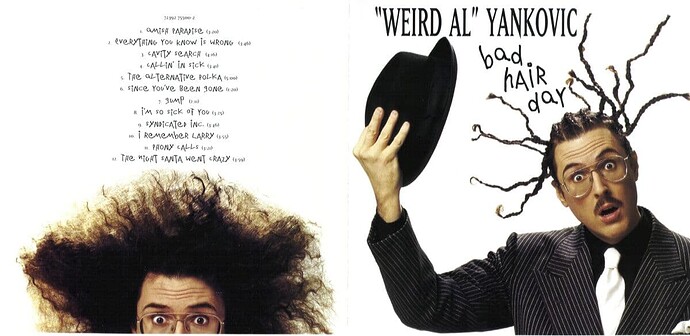 1. AMISH PARADISE (3:20)
2. EVERYTHING YOU KNOW IS WRONG (3:48)
3. CAVITY SEARCH
4. CALLIN' IN SICK
5. THE ALTERNATIVE POLKA
6. SINCE YOU'VE BEEN GONE
7. GUMP
8. I'M SO SICK OF YOU
9. SYNDICATED INC.
10. I REMEMBER LARRY
11. PHONY CALLS
12. THE NIGHT SANTA WENT CRAZY
"WEIRD AL" YANKOVIC
bad
HAIR
day